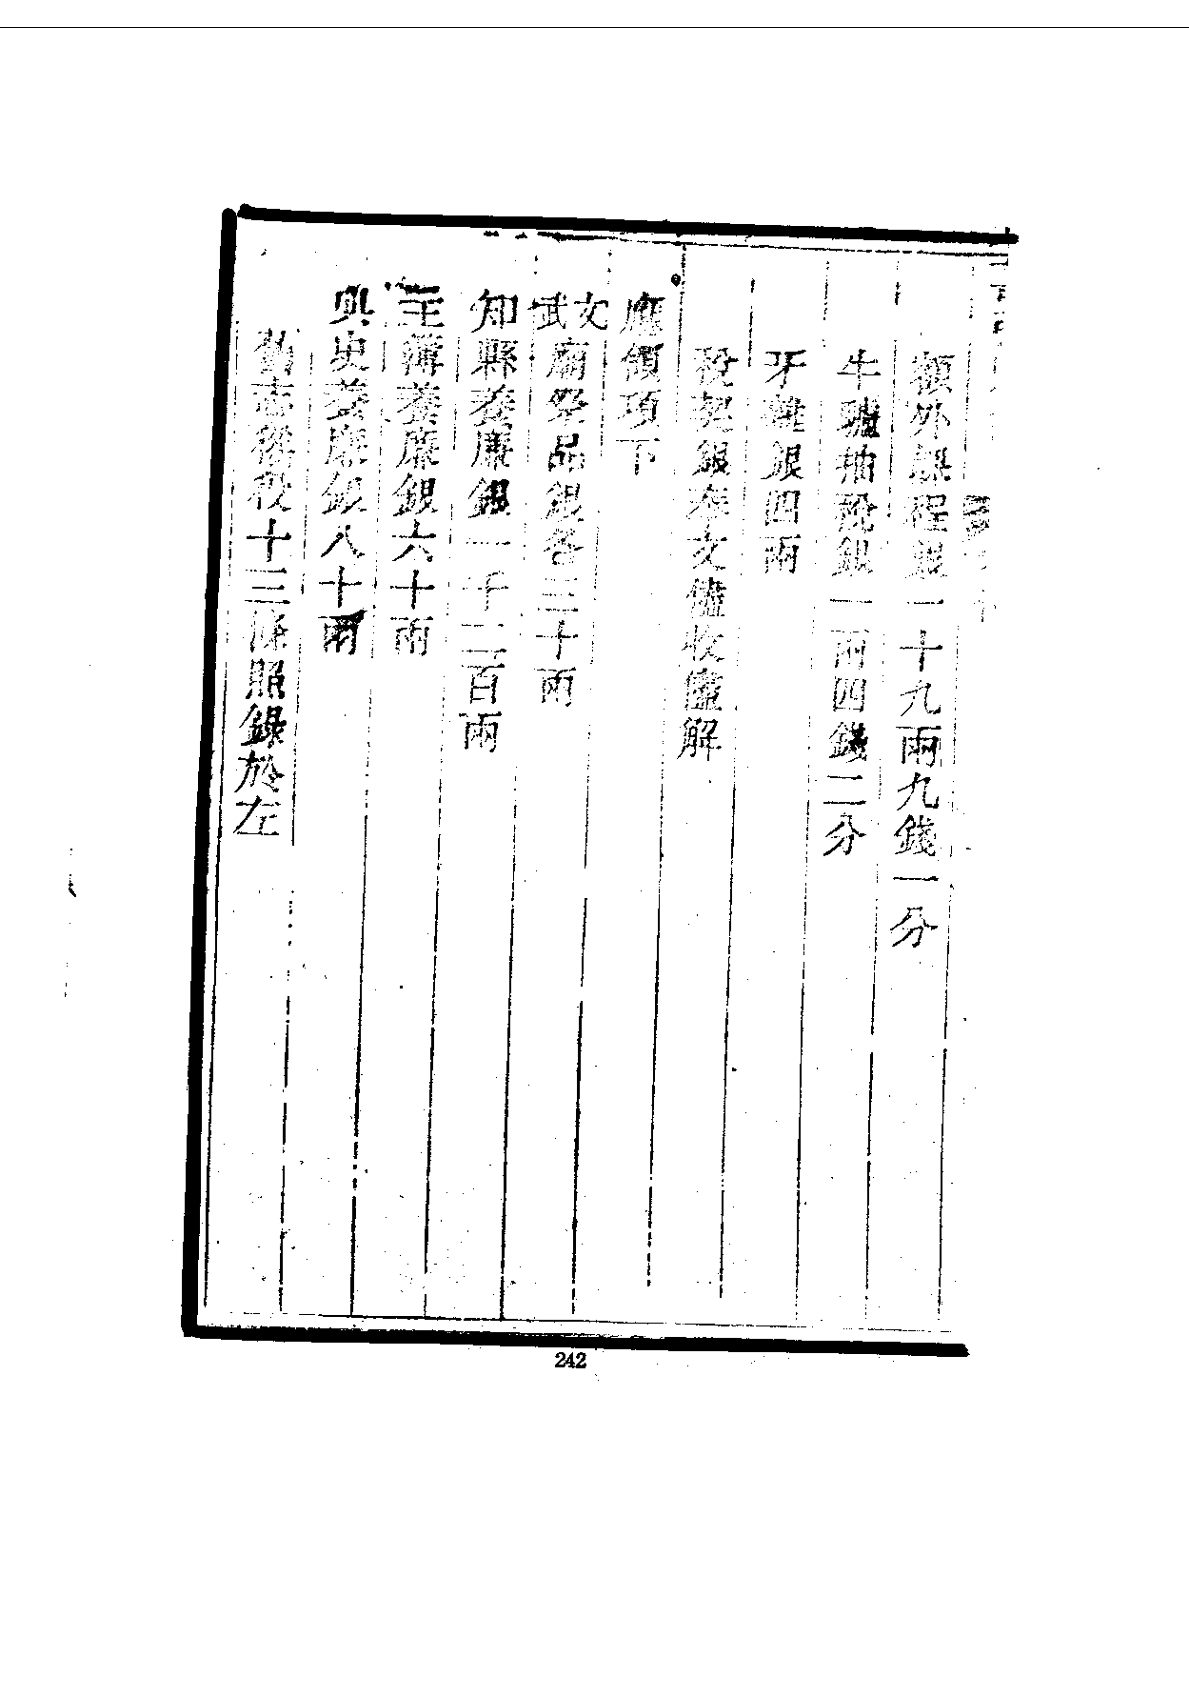 額外課程銀一十九兩九錢一分
牛驢抽稅銀一兩四錢二分
牙雜銀四兩
稅契銀奉文儘收儘解
應領項下
文武廟祭品銀各三十兩
知縣養廉銀一千二百兩
主簿養廉銀六十兩
典史養廉銀八十兩
舊志徭役十三條照錄於左
242